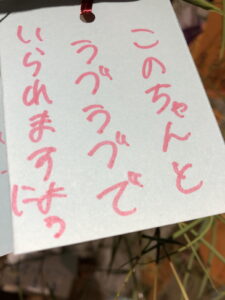 このちゃんと
ラブラブで
いられますように